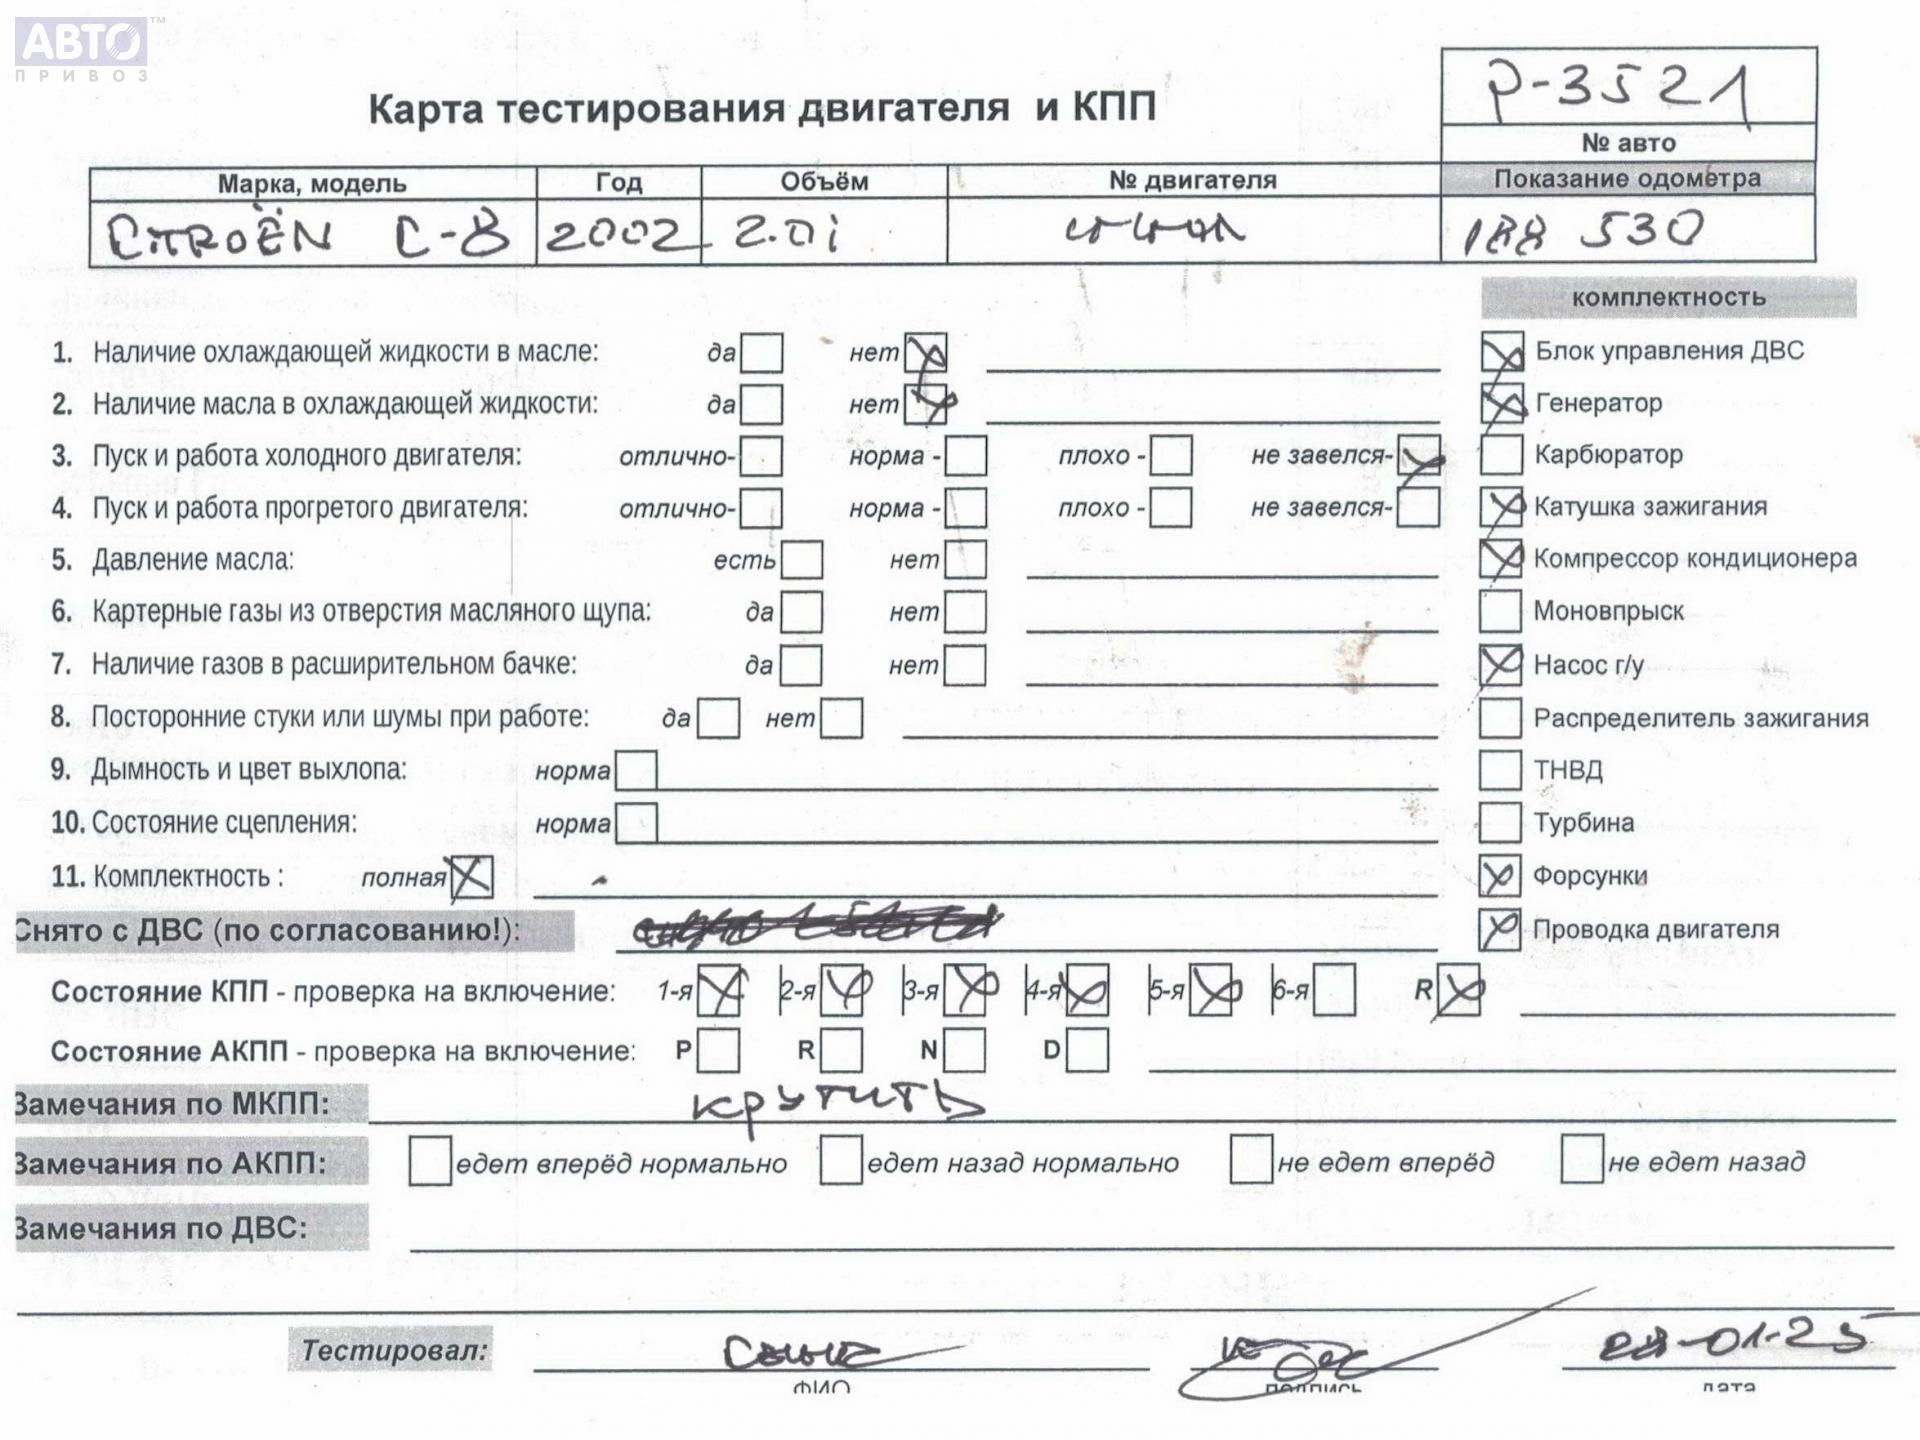 АВТО™
ПРИВОЗ
Карта тестирования двигателя и КПП
P-3521
№ авто
Марка, модель Год Объём № двигателя Показание одометра
CITROËN C-8 2002 2.0i 188 530
комплектность
1. Наличие охлаждающей жидкости в масле: да нет Блок управления ДВС
2. Наличие масла в охлаждающей жидкости: да нет Генератор
3. Пуск и работа холодного двигателя: отлично- норма - плохо - не завелся- Карбюратор
4. Пуск и работа прогретого двигателя: отлично- норма - плохо - не завелся- Катушка зажигания
5. Давление масла: есть нет Компрессор кондиционера
6. Картерные газы из отверстия масляного щупа: да нет Моновпрыск
7. Наличие газов в расширительном бачке: да нет Насос г/у
8. Посторонние стуки или шумы при работе: да нет Распределитель зажигания
9. Дымность и цвет выхлопа: норма ТНВД
10. Состояние сцепления: норма Турбина
11. Комплектность : полная Форсунки
Снято с ДВС (по согласованию!): Проводка двигателя
Состояние КПП - проверка на включение: 1-я 2-я 3-я 4-я 5-я 6-я R
Состояние АКПП - проверка на включение: P R N D
Замечания по МКПП: крутить
Замечания по АКПП: едет вперёд нормально едет назад нормально не едет вперёд не едет назад
Замечания по ДВС:
Тестировал: 28-01-25
ФИО подпись дата